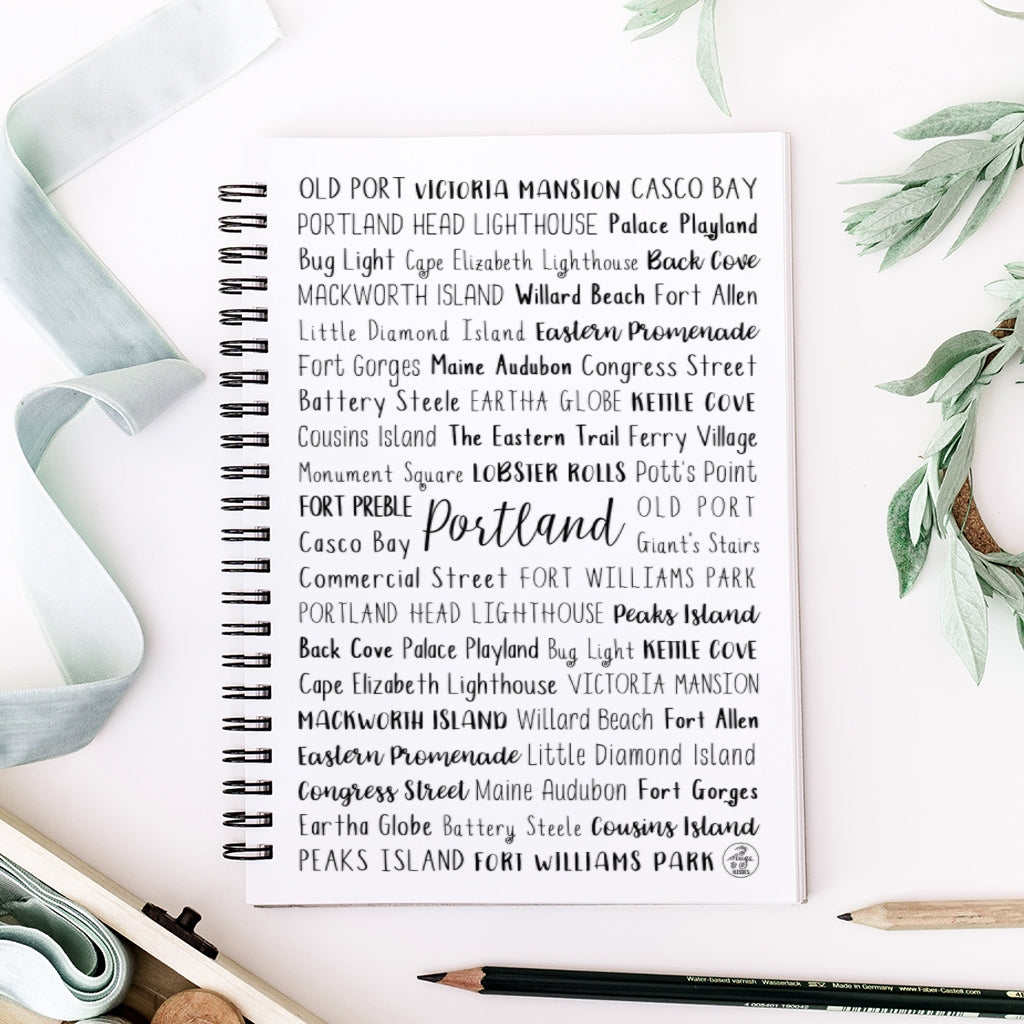 OLD PORT VICTORIA MANSION CASCO BAY
PORTLAND HEAD LIGHTHOUSE Palace Playland
Bug Light Cape Elizabeth Lighthouse Back Cove
MACKWORTH ISLAND Willard Beach Fort Allen
Little Diamond Island Eastern Promenade
Fort Gorges Maine Audubon Congress Street
Battery Steele EARTHA GLOBE KETTLE COVE
Cousins Island The Eastern Trail Ferry Village
Monument Square LOBSTER ROLLS Pott's Point
FORT PREBLE Portland OLD PORT
Casco Bay Giant's Stairs
Commercial Street FORT WILLIAMS PARK
PORTLAND HEAD LIGHTHOUSE Peaks Island
Back Cove Palace Playland Bug Light KETTLE COVE
Cape Elizabeth Lighthouse VICTORIA MANSION
MACKWORTH ISLAND Willard Beach Fort Allen
Eastern Promenade Little Diamond Island
Congress Street Maine Audubon Fort Gorges
Eartha Globe Battery Steele Cousins Island
PEAKS ISLAND FORT WILLIAMS PARK
Water-based varnish Wasserlack Made in Germany www.Faber-Castell.com
4 005401 190042